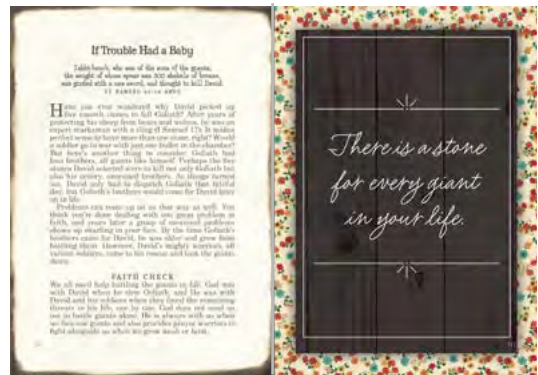 If Trouble Had a Baby
Ishbi-benob, who was of the sons of the giants,
the weight of whose spear was 300 shekels of bronze,
was girded with a new sword, and thought to kill David.
Have you ever wondered why David picked up
five smooth stones to fell Goliath? After years of
protecting his sheep from bears and wolves, he was an
expert marksman with a sling (1 Samuel 17). It makes
perfect sense to have more than one stone, right? Would
a soldier go to war with just one bullet in the chamber?
But here's another thing to consider: Goliath had
four brothers, all giants like himself. Perhaps the five
stones David selected were to kill not only Goliath but
also his ornery, oversized brothers. As things turned
out, David only had to dispatch Goliath that fateful
day, but Goliath's brothers would come for David later
on in life.
Problems can come up on us that way as well. You
think you're done dealing with one great problem in
faith, and years later a group of oversized problems
shows up snarling in your face. By the time Goliath's
brothers came for David, he was older and grew faint
battling them. However, David's mighty warriors, all
valiant soldiers, came to his rescue and took the giants
down.
FAITH CHECK
We all need help battling the giants in life. God was
with David when he slew Goliath, and He was with
David and his soldiers when they faced the remaining
threats to his life, one by one. God does not send us
out to battle giants alone. He is always with us when
we face our giants and also provides prayer warriors to
fight alongside us when we grow weak or faint.
There is a stone
for every giant
in your life.